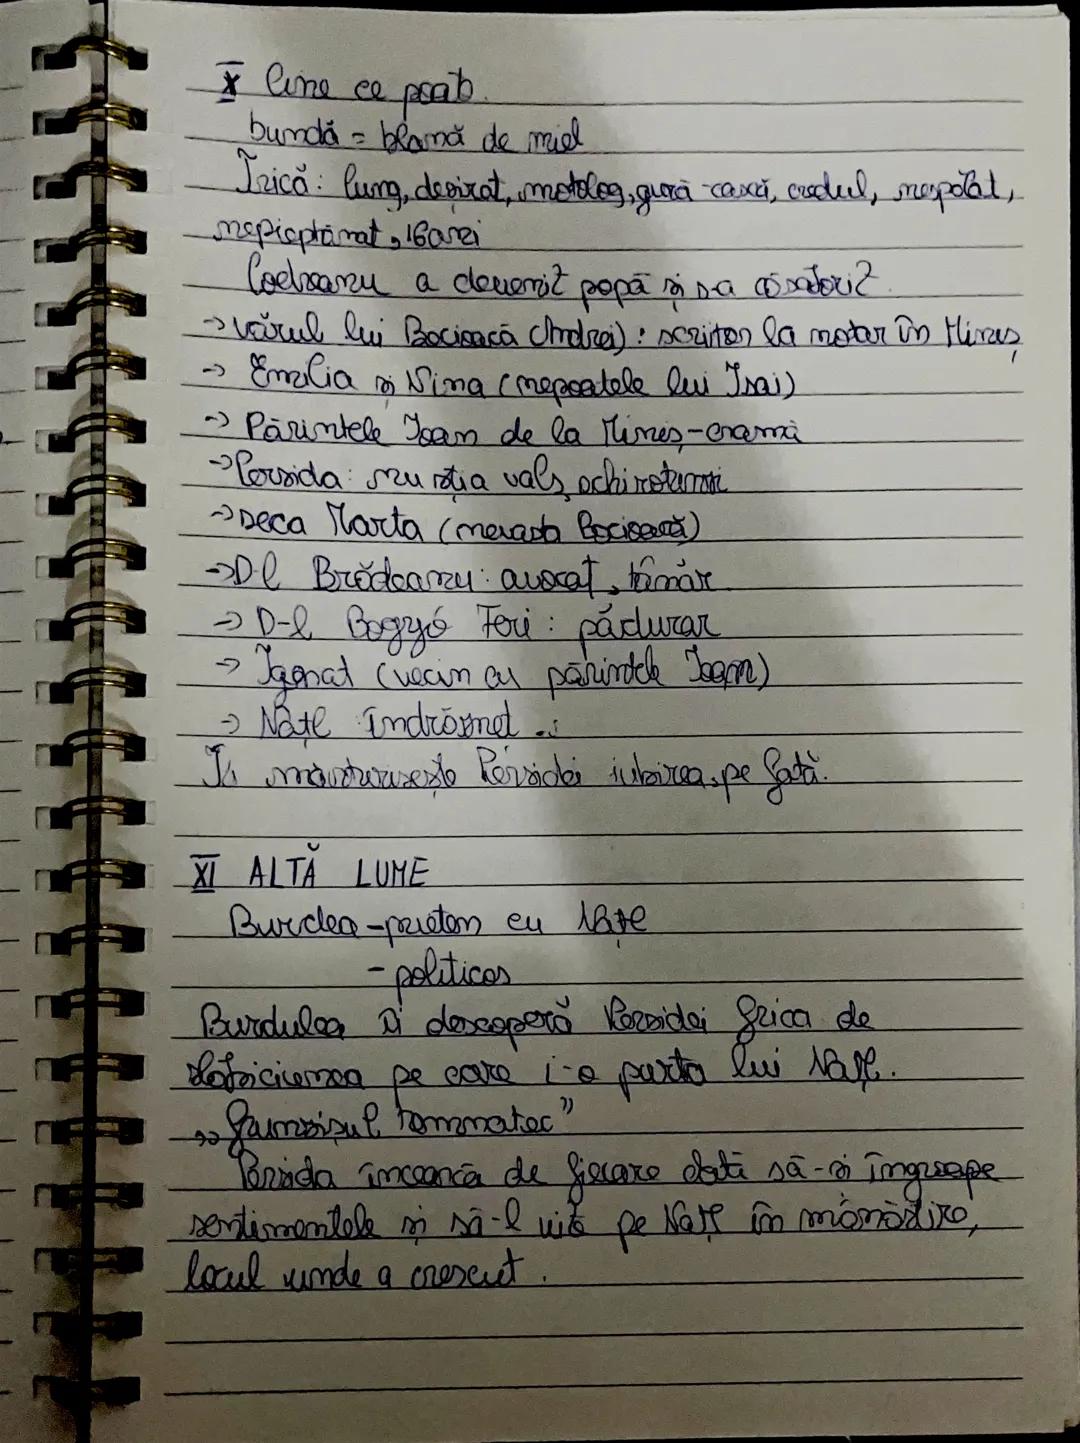 X Cine ce poate.
bundă = blană de miel
Țrică: lung, deșirat, motolog, gură-cască, credul, nespălat,
nepieptănat, 16 ani
Codreanu a devenit popă și s-a căsătorit.
→ vărul lui Bocioacă (Andrei): scriitor la notar în Miniș
→ Emilia și Nina (nepoatele lui Isai)
→ Părintele Ioan de la Miniș - cramă
→ Persida: nu știa vals,
→ Leca Marta (nevasta Bocioacă)
→ Dl Brădeanu: avocat, tânăr
→ D-l Bogyó Feri: pădurar
→ Ignat (vecin cu părintele Ioan)
→ Națl îndrăzneț
Îi mărturisește Persidei iubirea, pe față.
XI ALTĂ LUME
Burdea - prieten cu Națl
- politicos
Burdulea îi descoperă Persidei frica de
slăbiciunea pe care i-o purta lui Națl.
„ tomnatec”
Persida încearcă de fiecare dată să-și îngroape
sentimentele și să-l uite pe Națl în mănăstire,
locul unde a crescut.